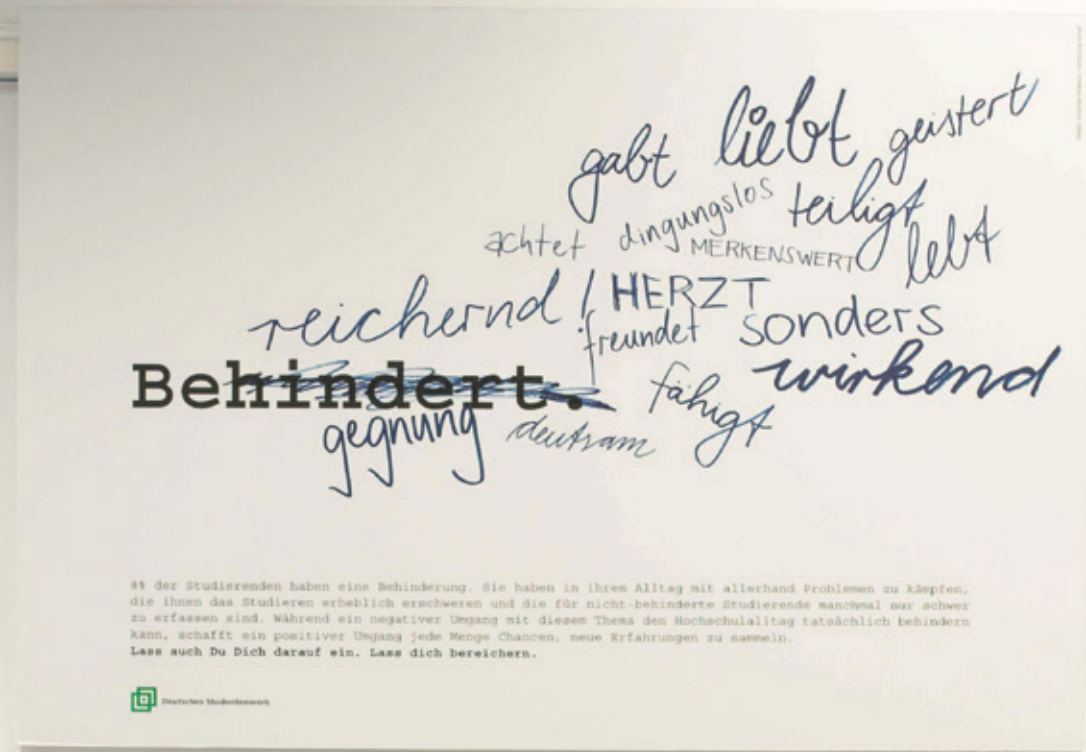 gabt liebt geistert
achtet dingungslos teiligt
MERKENSWERT lebt
reichernd / HERZT
freundet sonders
Behindert. fähigt wirkend
gegnung deutsam
8% der Studierenden haben eine Behinderung. Sie haben in ihrem Alltag mit allerhand Problemen zu kämpfen,
die ihnen das Studieren erheblich erschweren und die für nicht-behinderte Studierende manchmal nur schwer
zu erfassen sind. Während ein negativer Umgang mit diesem Thema den Hochschulalltag tatsächlich behindern
kann, schafft ein positiver Umgang jede Menge Chancen, neue Erfahrungen zu sammeln.
Lass auch Du Dich darauf ein. Lass dich bereichern.
Deutsches Studentenwerk